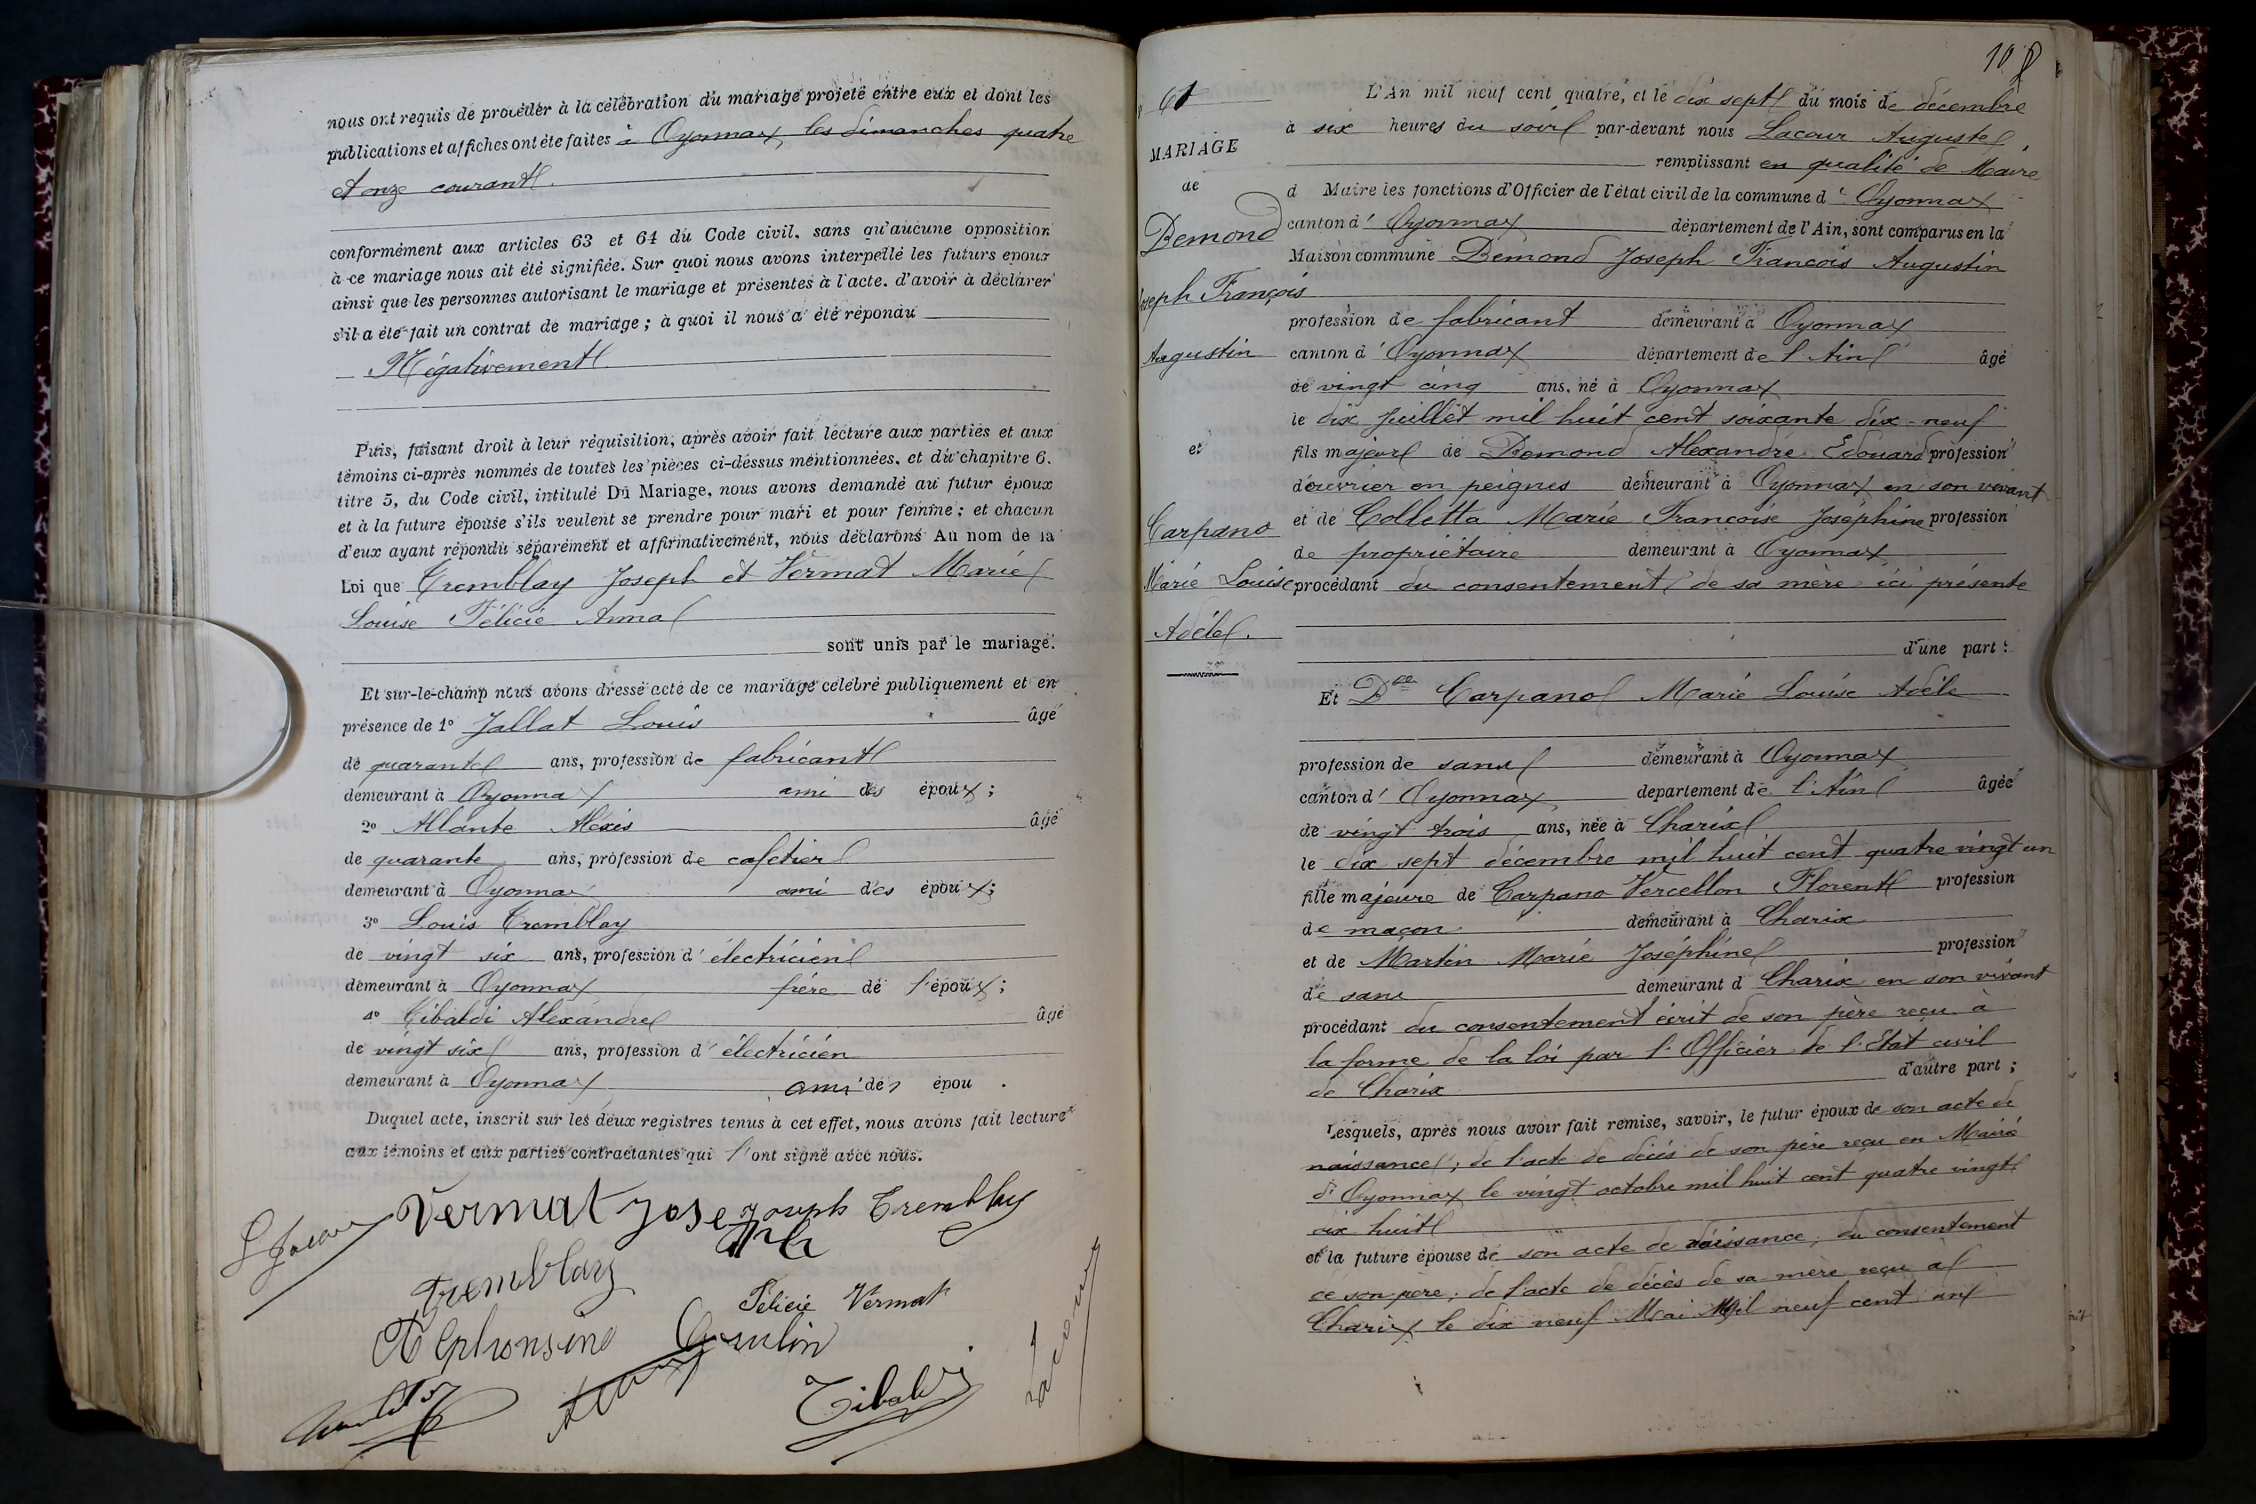 nous ont requis de procéder à la célébration du mariage projeté entre eux et dont les
publications et affiches ont été faites à Oyonnax, les dimanches quatre
et onze courant.
conformément aux articles 63 et 64 du Code civil, sans qu'aucune opposition
à ce mariage nous ait été signifiée. Sur quoi nous avons interpellé les futurs epoux
ainsi que les personnes autorisant le mariage et présentes à l'acte. d'avoir à déclarer
s'il a été fait un contrat de mariage ; à quoi il nous a été répondu
Négativement
Puis, faisant droit à leur réquisition, après avoir fait lecture aux parties et aux
témoins ci-après nommés de toutes les pièces ci-dessus mentionnées, et du chapitre 6.
titre 5, du Code civil, intitulé Du Mariage, nous avons demandé au futur époux
et à la future épouse s'ils veulent se prendre pour mari et pour femme ; et chacun
d'eux ayant répondu séparément et affirmativement, nous déclarons Au nom de la
Loi que Tremblay Joseph et Vermat Marie
Louise Félicie Anna
sont unis par le mariage.
Et sur-le-champ nous avons dressé acte de ce mariage célébré publiquement et en
présence de 1° Jallat Louis âgé
de quarante ans, profession de fabricant
demeurant à Oyonnax ami des époux ;
2° Allante Alexis âgé
de quarante ans, profession de cafetier
demeurant à Oyonnax ami des époux ;
3° Louis Tremblay
de vingt six ans, profession d'électricien
demeurant à Oyonnax frère de l'époux ;
4° Tibaldi Alexandre âgé
de vingt six ans, profession d'électricien
demeurant à Oyonnax ami des épou .
Duquel acte, inscrit sur les deux registres tenus à cet effet, nous avons fait lecture
aux témoins et aux parties contractantes qui l'ont signé avec nous.
Vermat Joseph Joseph Tremblay
Tremblay
Félicie Vermat
Alphonsine
Tibaldi
Lacour
108
61
MARIAGE
de
Demond
Joseph François
Augustin
et
Carpano
Marie Louise
Adèle.
L'An mil neuf cent quatre, et le dix sept du mois de décembre
à six heures du soir par-devant nous Lacour Auguste
remplissant en qualité de Maire
d Maire les fonctions d'Officier de l'état civil de la commune d' Oyonnax
canton d' Oyonnax département de l'Ain, sont comparus en la
Maison commune Demond Joseph François Augustin
profession de fabricant demeurant à Oyonnax
canton d' Oyonnax département de l'Ain âgé
de vingt cinq ans, né à Oyonnax
le dix Juillet mil huit cent soixante dix-neuf
fils majeur de Demond Alexandre Edouard profession
d'ouvrier en peignes demeurant à Oyonnax en son vivant
et de Colletta Marie Françoise Joséphine profession
de propriétaire demeurant à Oyonnax
procédant du consentement de sa mère ici présente
d'une part :
Et Dlle Carpano Marie Louise Adèle
profession de sans demeurant à Oyonnax
canton d' Oyonnax departement de l'Ain âgée
de vingt trois ans, née à Charix
le dix sept décembre mil huit cent quatre vingt un
fille majeure de Carpano Vercellon Florent profession
de maçon demeurant à Charix
et de Martin Marie Joséphine profession
de sans demeurant à Charix en son vivant
procédant du consentement écrit de son père reçu à
la forme de la loi par l'Officier de l'Etat civil
de Charix d'autre part ;
Lesquels, après nous avoir fait remise, savoir, le futur époux de son acte de
naissance ; de l'acte de décès de son père reçu en Mairie
d'Oyonnax le vingt octobre mil huit cent quatre vingt
dix huit
et la future épouse de son acte de naissance, du consentement
de son père ; de l'acte de décès de sa mère reçu à
Charix le dix neuf Mai Mil neuf cent un